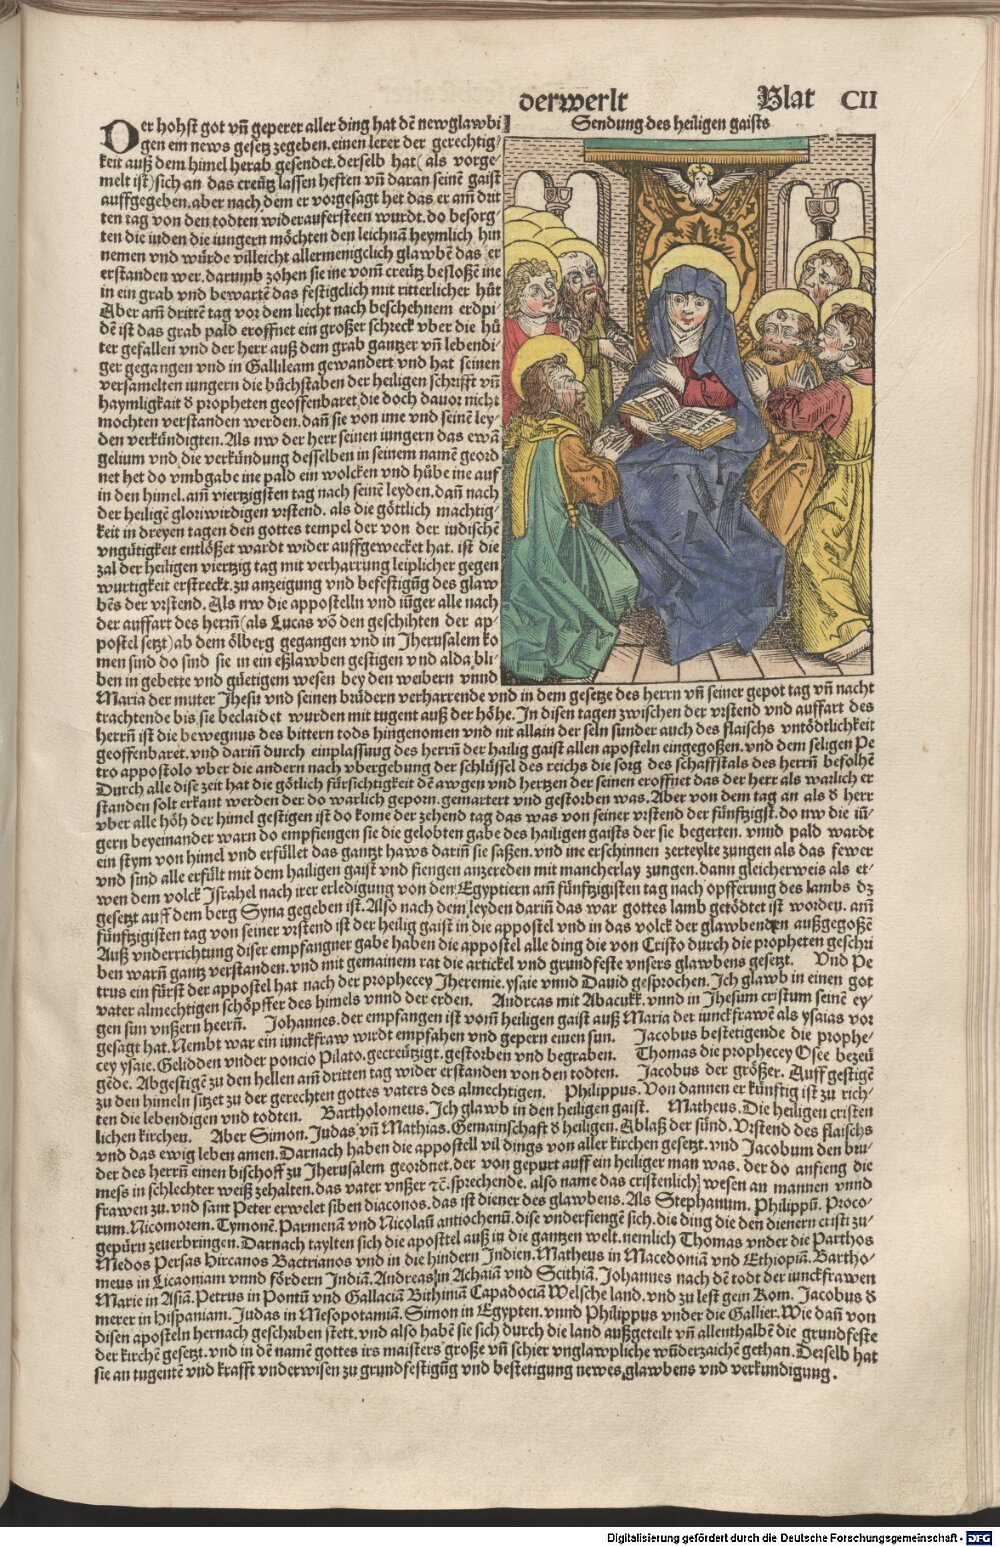 der werlt
Blat CII
Sendung des heiligen gaists
Der hohst got vñ geperer aller ding hat dẽ newglawbi
gen ein news gesetz zegeben. einen lerer der gerechtig-
keit auß dem himel herab gesendet. derselb hat (als vorge-
melt ist) sich an das creütz lassen heften vñ daran seinẽ gaist
auffgegeben. aber nach dem er vorgesagt het das er am̃ drit
ten tag von den todten widerauferſteen wurdt. do besorg-
ten die iuden die iungern möchten den leichnã heymlich hin
nemen vnd würde villeicht allermenigclich glawbẽ das er
erstanden wer. darumb zohen sie ine vom̃ creütz besloßẽ ine
in ein grab vnd bewartẽ das festigclich mit ritterlicher hůt
Aber am̃ drittẽ tag vor dem liecht nach beschehnem erdpi-
dẽ ist das grab pald eroffnet ein großer schreck vber die hů
ter gefallen vnd der herr auß dem grab gantzer vñ lebendi-
ger gegangen vnd in Gallileam gewandert vnd hat seinen
versamelten iungern die bůchstaben der heiligen schrifft vñ
haymligkait d̕ propheten geoffenbaret. die doch dauor nicht
mochten verstanden werden. dañ sie von ime vnd seinẽ ley-
den verkündigten. Als nw der herr seinen iungern das ewã
gelium vnd die verkündung desselben in seinem namẽ geord
net het do vmbgabe ine pald ein wolcken vnd hůbe ine auf
in den himel. am̃ viertzigsten tag nach seinẽ leyden. dañ nach
der heiligẽ gloriwirdigen vrstend. als die göttlich machtig-
keit in dreyen tagen den gottes tempel der von der iudischẽ
vngütigkeit entlößet wardt wider auffgewecket hat. ist die
zal der heiligen viertzig tag mit verharrung leiplicher gegen
wurtigkeit erstreckt. zu anzeigung vnd befestigũg des glaw
bẽs der vrstend. Als nw die appostelln vnd iũger alle nach
der auffart des herrñ (als Lucas võ den geschihten der ap-
postel setzt) ab dem ölberg gegangen vnd in Jherusalem ko
men sind do sind sie in ein eßlawben gestigen vnd alda bli-
ben in gebette vnd gůetigem wesen bey den weibern vnnd
Maria der muter Jhesu vnd seinen brüdern verharrende vnd in dem gesetze des herrn vñ seiner gepot tag vñ nacht
trachtende bis sie beclaidet wurden mit tugent auß der höhe. In disen tagen zwischen der vrstend vnd auffart des
herrñ ist die bewegnus des bittern tods hingenomen vnd nit allain der seln sunder auch des flaischs vntödtlichkeit
geoffenbaret. vnd dariñ durch einplassuug des herrñ der hailig gaist allen aposteln eingegoßen. vnd dem seligen Pe
tro appostolo vber die andern nach vbergebung der schlüssel des reichs die sorg des schaffstals des herrñ befolhẽ
Durch alle dise zeit hat die götlich fürsichtigkeit dẽ awgen vnd hertzen der seinen eroffnet das der herr als warlich er
standen solt erkant werden der do warlich geporn. gemartert vnd gestorben was. Aber von dem tag an als d̕ herr
vber alle höh der himel gestigen ist do kome der zehend tag das was von seiner vrstend der fünftzigst. do nw die iũ-
gern beyeinander warn do empfiengen sie die gelobten gabe des hailigen gaists der sie begerten. vnnd pald wardt
ein stym von himel vnd erfüllet das gantzt haws dariñ sie saßen. vnd ine erschinnen zerteylte zungen als das fewer
vnd sind alle erfült mit dem hailigen gaist vnd fiengen anzereden mit mancherlay zungen. dann gleicherweis als et-
wen dem volck Israhel nach irer erledigung von den Egyptiern am̃ fünftzigisten tag nach opfferung des lambs dz
gesetzt auff dem berg Syna gegeben ist. Also nach dem leyden dariñ das war gottes lamb getödtet ist worden. am̃
fünftzigisten tag von seiner vrstend ist der heilig gaist in die appostel vnd in das volck der glawbenden außgegoßẽ
Auß vnderrichtung diser empfangner gabe haben die appostel alle ding die von Cristo durch die propheten geschri
ben warñ gantz verstanden. vnd mit gemainem rat die artickel vnd grundfeste vnsers glawbens gesetzt. Vnd Pe
trus ein fürst der appostel hat nach der prophecey Jheremie. ysaie vnnd Dauid gesprochen. Ich glawb in einen got
vater almechtigen schöpffer des himels vnnd der erden. Andreas mit Abacukk. vnnd in Jhesum cristum seinẽ ey-
gen sun vnßern heerñ. Johannes. der empfangen ist vom̃ heiligen gaist auß Maria der iunckfrawẽ als ysaias vor
gesagt hat. Nembt war ein iunckfraw wirdt empfahen vnd gepern einen sun. Jacobus bestetigende die prophe-
cey ysaie. Gelidden vnder poncio Pilato. gecreützigt. gestorben vnd begraben. Thomas die prophecey Osee bezeü
gẽde. Abgestigẽ zu den hellen am̃ dritten tag wider erstanden von den todten. Jacobus der größer. Auffgestigẽ
zu den himeln sitzet zu der gerechten gottes vaters des almechtigen. Philippus. Von dannen er künftig ist zu rich-
ten die lebendigen vnd todten. Bartholomeus. Ich glawb in den heiligen gaist. Matheus. Die heiligen cristen
lichen kirchen. Aber Simon. Judas vñ Mathias. Gemainschaft d̕ heiligen. Ablaß der sünd. Vrstend des flaischs
vnd das ewig leben amen. Darnach haben die appostell vil dings von aller kirchen gesetzt. vnd Jacobum den bru-
der des herrñ einen bischoff zu Jherusalem geordnet. der von gepurt auff ein heiliger man was. der do anfieng die
mess in schlechter weiß zehalten. das vater vnßer ꝛc̃. sprechende. also name das cristenlich wesen an mannen vnnd
frawen zu. vnd sant Peter erwelet siben diaconos. das ist diener des glawbens. Als Stephanum. Philippũ. Proco-
rum. Nicomorem. Tymonẽ. Parmenã vnd Nicolaũ antiochenũ. dise vnderfiengẽ sich. die ding die den dienern cristi zu-
gepürn zeuerbringen. Darnach taylten sich die aposttel auß in die gantzen welt. nemlich Thomas vnder die Parthos
Medos Persas Hircanos Bactrianos vnd in die hindern Indien. Matheus in Macedoniã vnd Ethiopiã. Bartho-
meus in Licaoniam vnnd fördern Indiã. Andreas in Achaiã vnd Scithiã. Johannes nach dẽ todt der iunckfrawen
Marie in Asiã. Petrus in Pontũ vnd Gallaciã Bithiniã Capadociã Welsche land. vnd zu lest gein Rom. Jacobus d̕
merer in Hispaniam. Judas in Mesopotamiã. Simon in Egypten. vnnd Philippus vnder die Gallier. Wie dañ von
disen aposteln hernach geschriben stett. vnd also habẽ sie sich durch die land außgeteilt vñ allenthalbẽ die grundfeste
der kirchẽ gesetzt. vnd in dẽ namẽ gottes irs maisters große vñ schier vnglawpliche wũderzaichẽ gethan. Derselb hat
sie an tugentẽ vnd krafft vnderwisen zu grundfestigũg vnd bestetigung newes glawbens vnd verkundigung.
Digitalisierung gefördert durch die Deutsche Forschungsgemeinschaft - DFG